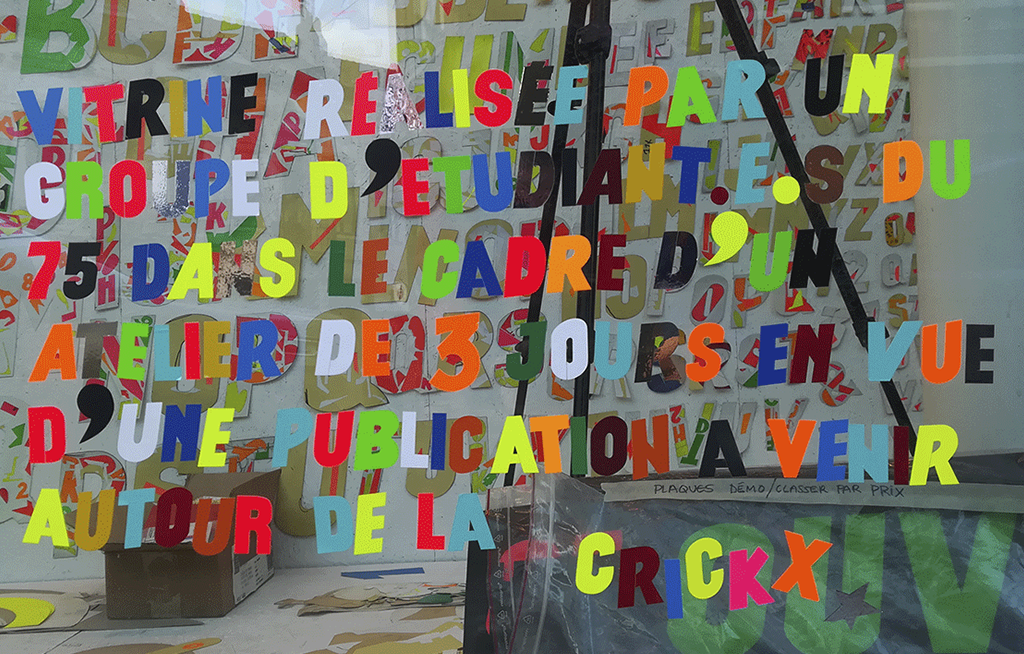 VITRINE RÉALISÉE PAR UN
GROUPE D'ETUDIANT.E.S DU
75 DANS LE CADRE D'UN
ATELIER DE 3 JOURS EN VUE
D'UNE PUBLICATION A VENIR
AUTOUR DE LA
CRICKX
PLAQUES DÉMO/CLASSER PAR PRIX
OUV